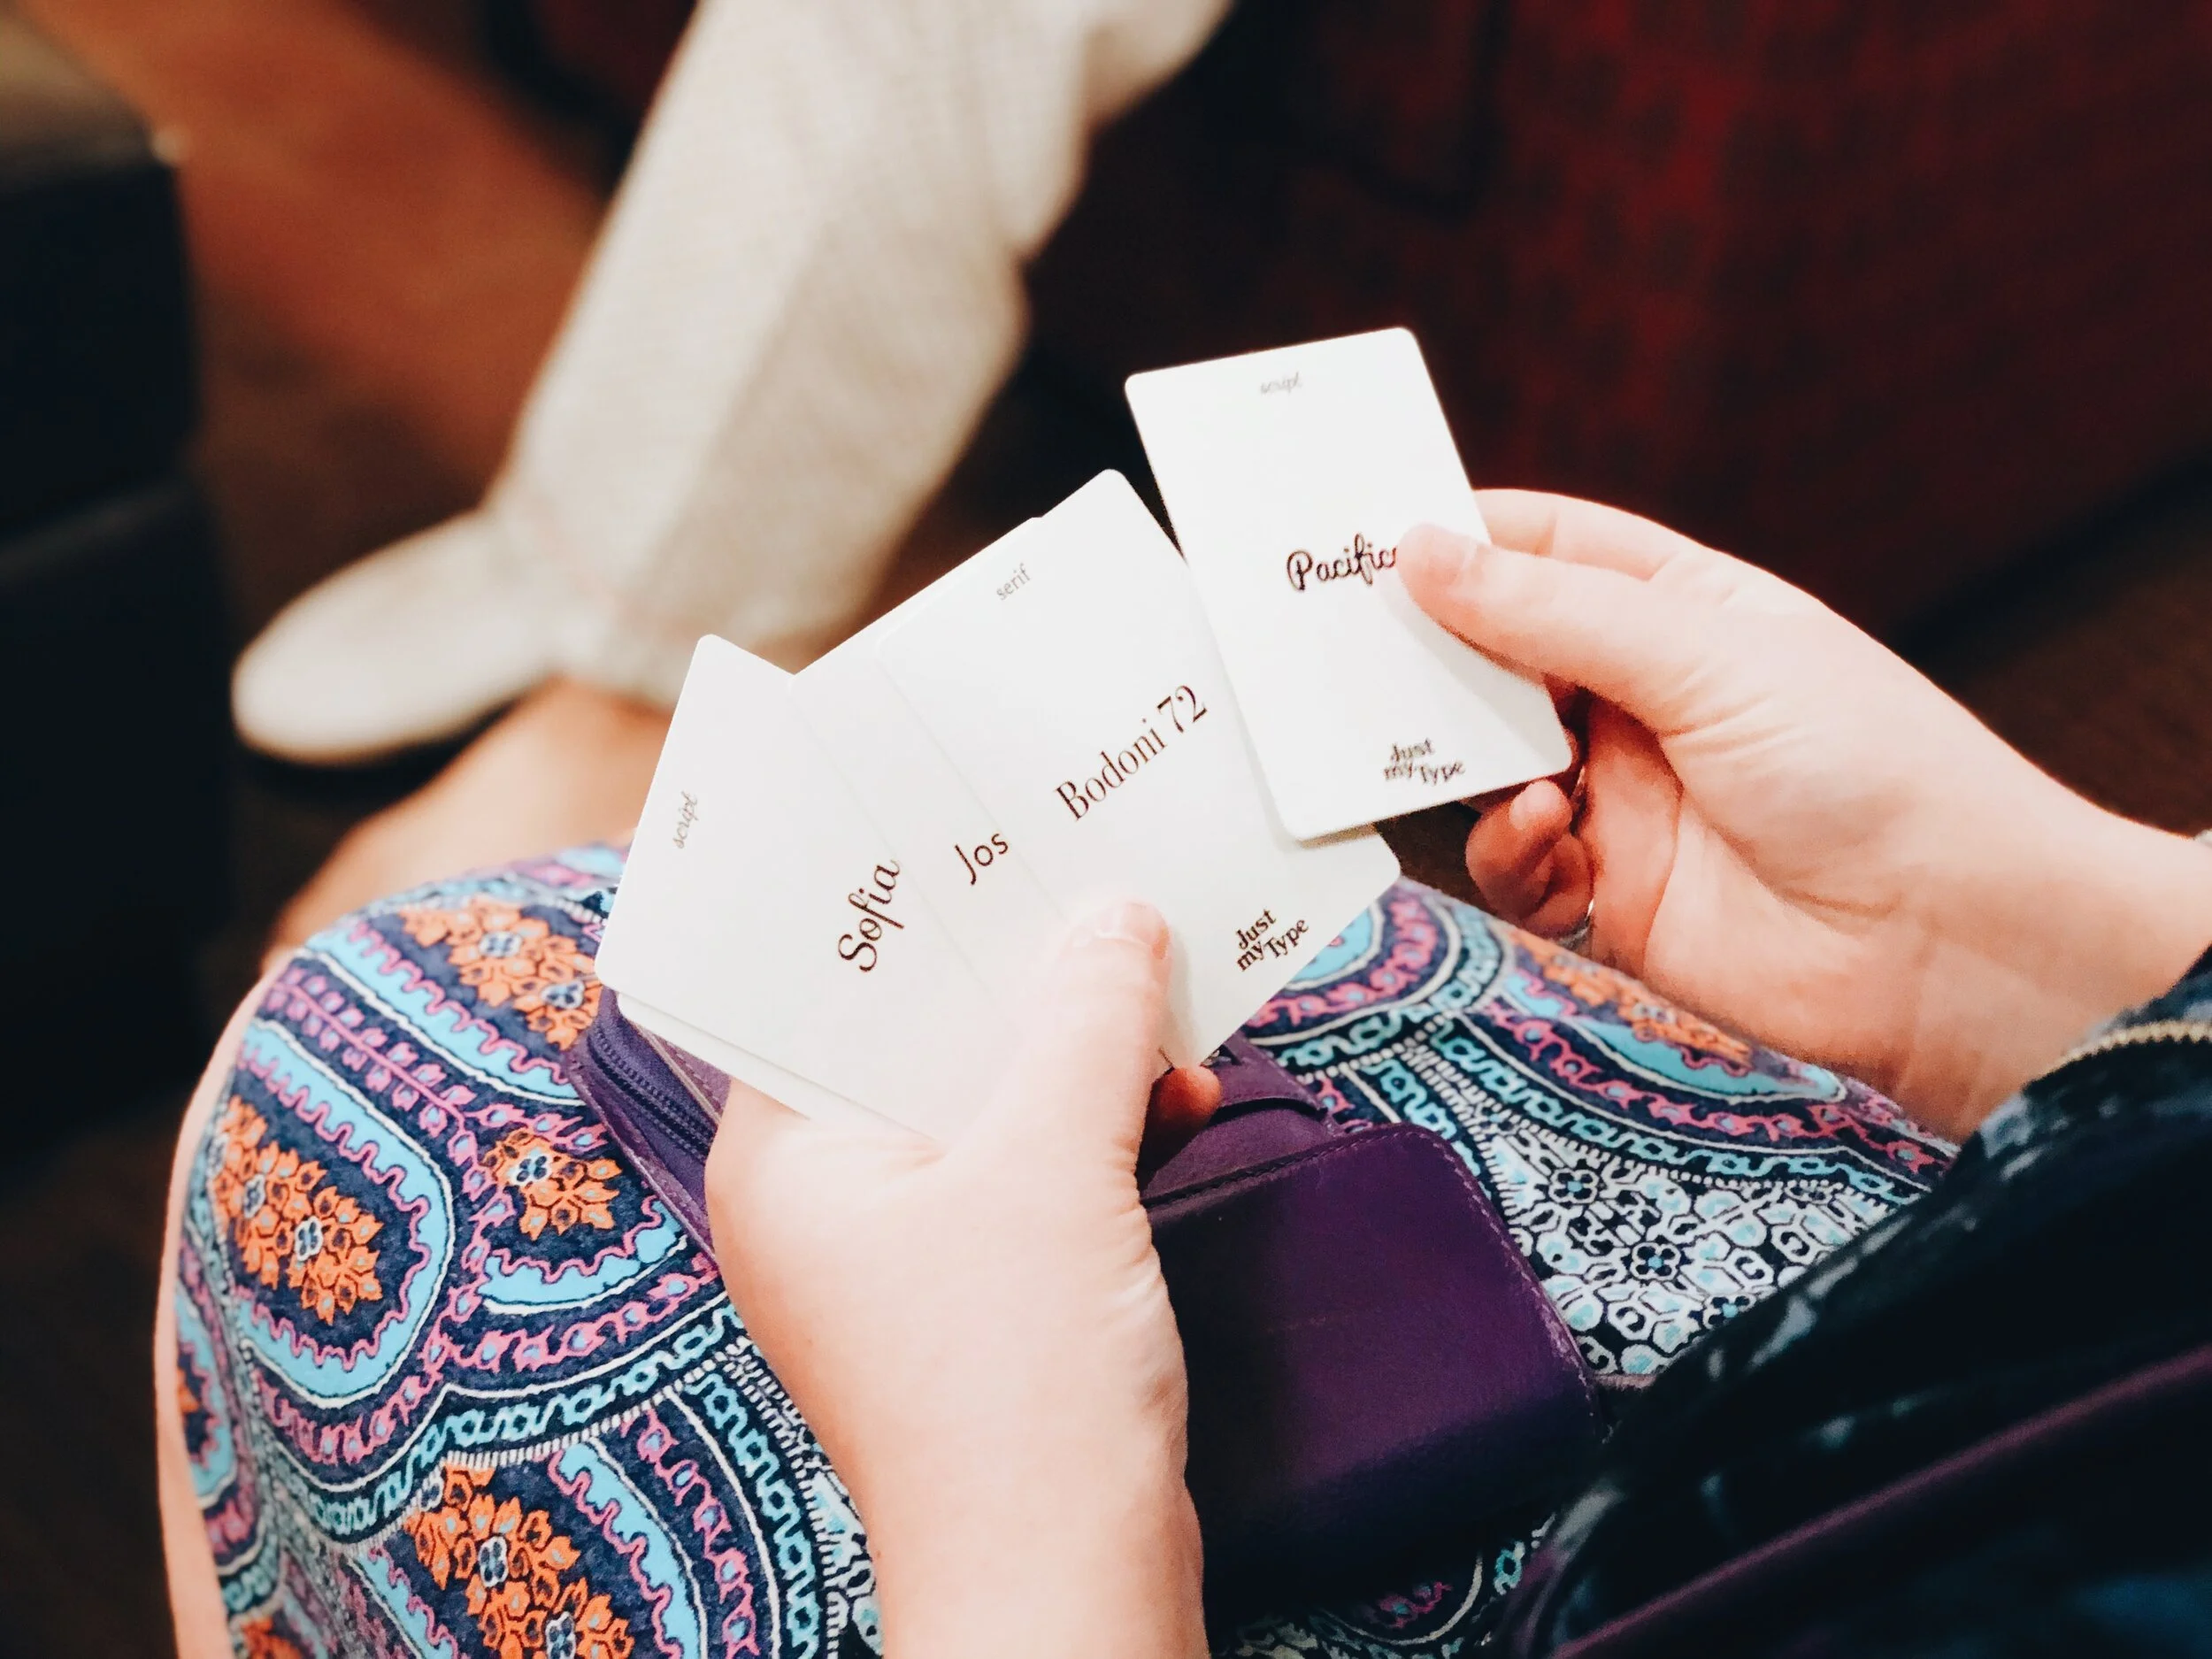 script
Sofia
Jos
serif
Bodoni 72
Just
my Type
script
Pacific
Just
my Type